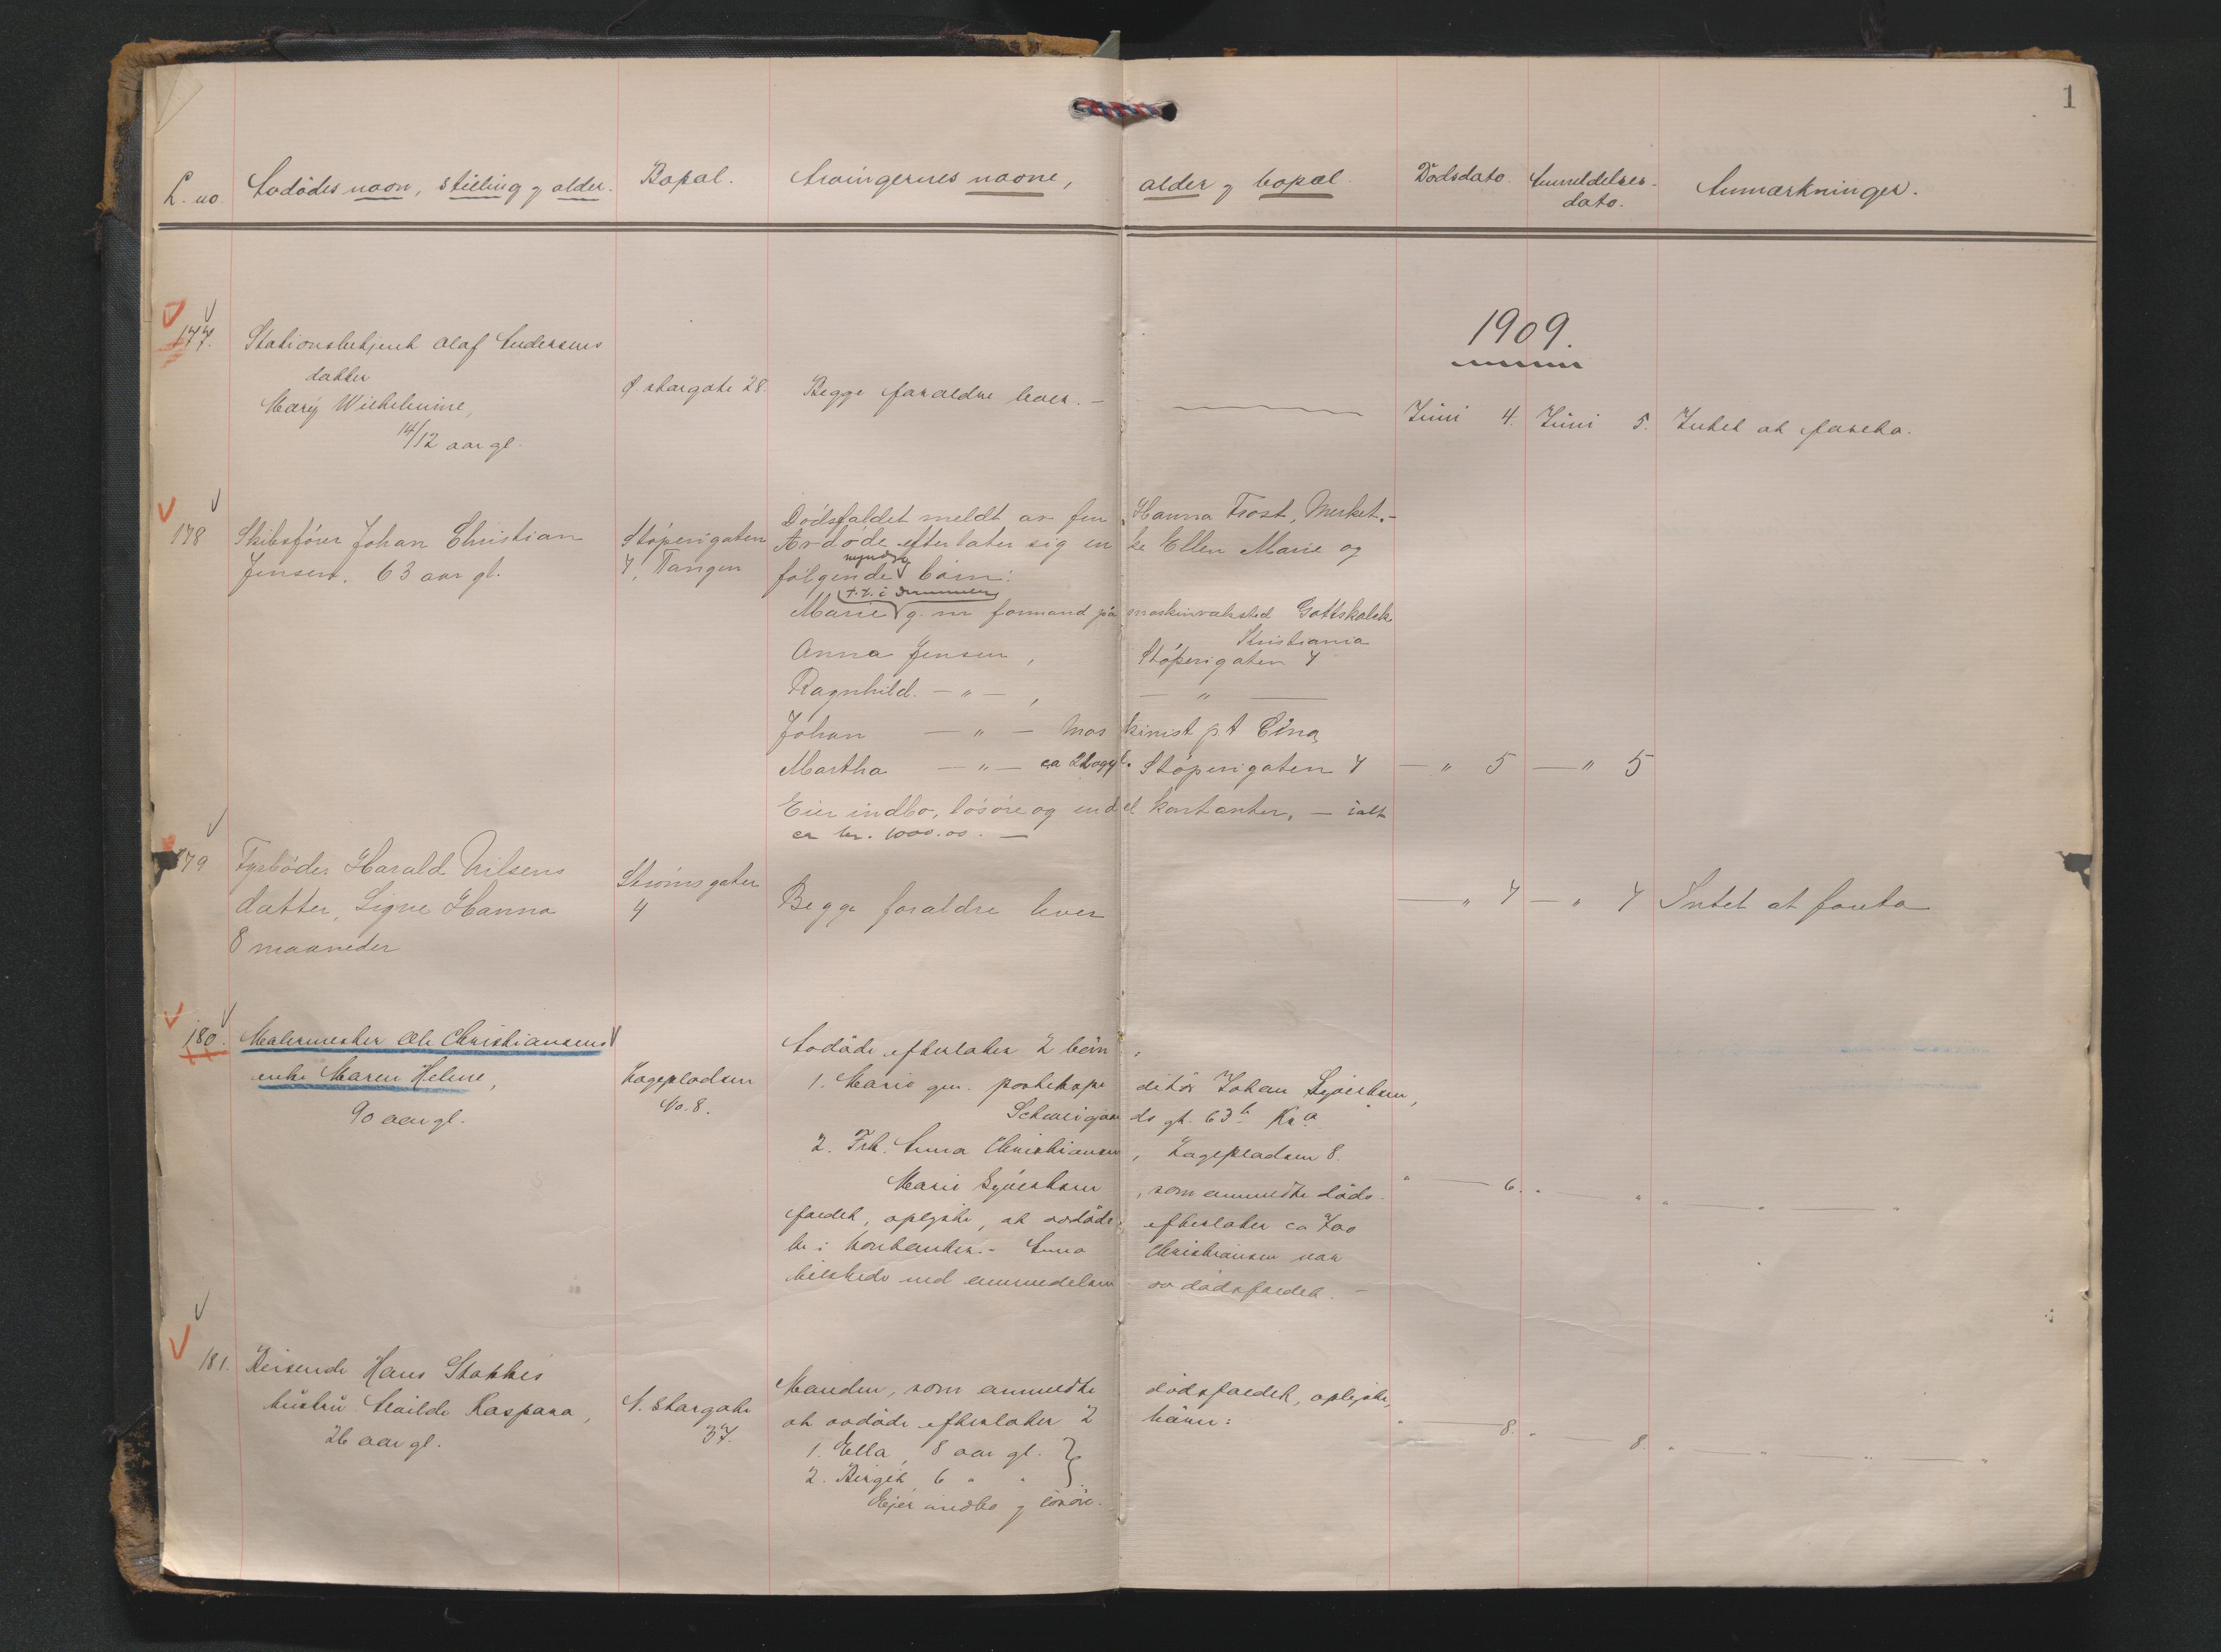 1
L. no. Avdödes navn, stilling og alder. Bopæl. Arvingernes navne, alder og bopæl. Dödsdato. Anmeldelses-
dato. Anmærkninger.
1909.
177. Stationsbetjent Olaf Andersens
datter
Mary Wilhelmine,
14/12 aar gl.
Ø. storgate 28. Begge forældre lever. — Juni 4. Juni 5. Intet at foreta.
178 Skibsförer Johan Christian
Jensen. 63 aar gl.
Stöperigaten
7, Tangen
Dödsfaldet meldt av fru Hanna Frost, Merket. -
Avdöde efterlater sig enke Ellen Marie og
følgende myndige börn:
t. v. i Drammen
Marie g. m formand på maskinverksted Gottskalck
Kristiania
Anna Jensen, Stöperigaten 7
Ragnhild. — " — , — " —
Johan — " — maskinist p. t
Martha — " — ca 21 aar gl. Stöperigaten 7 — " 5 — " 5
Eier indbo, lösöre og endel kontanter, — ialt
ca kr. 1000.00. —
179 Fyrböder Harald Nilsens
datter, Signe Hanna
8 maaneder
Strömsgaten
4
Begge forældre lever — " 7 — " 7 Intet at foreta
180. Malermester Ole Christiansens
enke Maren Helene,
90 aar gl.
Hageplodsen
No. 8.
Avdöde efterlater 2 börn:
1. Marie gm. postekspeditör Johan
Schweigaards gt. 63 b Kr.a
2. Frk. Anna Christiansen, Hageplodsen 8.
Marie, som anmeldte döds-
faldet, oplyste, at avdöde efterlater ca 700
kr i kontanter. - Anna Christiansen var
tilstede ved anmeldelsen av dödsfaldet. —
" — 6. " — " "
181. Reisende Hans Stokkes
hustru Kaspara,
26 aar gl.
N. Storgate
37.
Manden, som anmeldte dödsfaldet, oplyste,
at avdöde efterlater 2 börn:
1. Ella, 8 aar gl. }
2. Birgit, 6 " " }
Ejer indbo og lösöre.
" — 8. " — 8. " — " — " — "